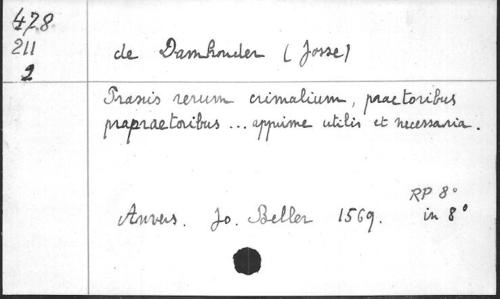 478
211
2
de Damhouder (Josse)
Praxis rerum crimalium, praetoribus
prapraetoribus ... appime utilis et necessaria.
RP 8°
Anvers. Jo. Beller 1569. in 8°